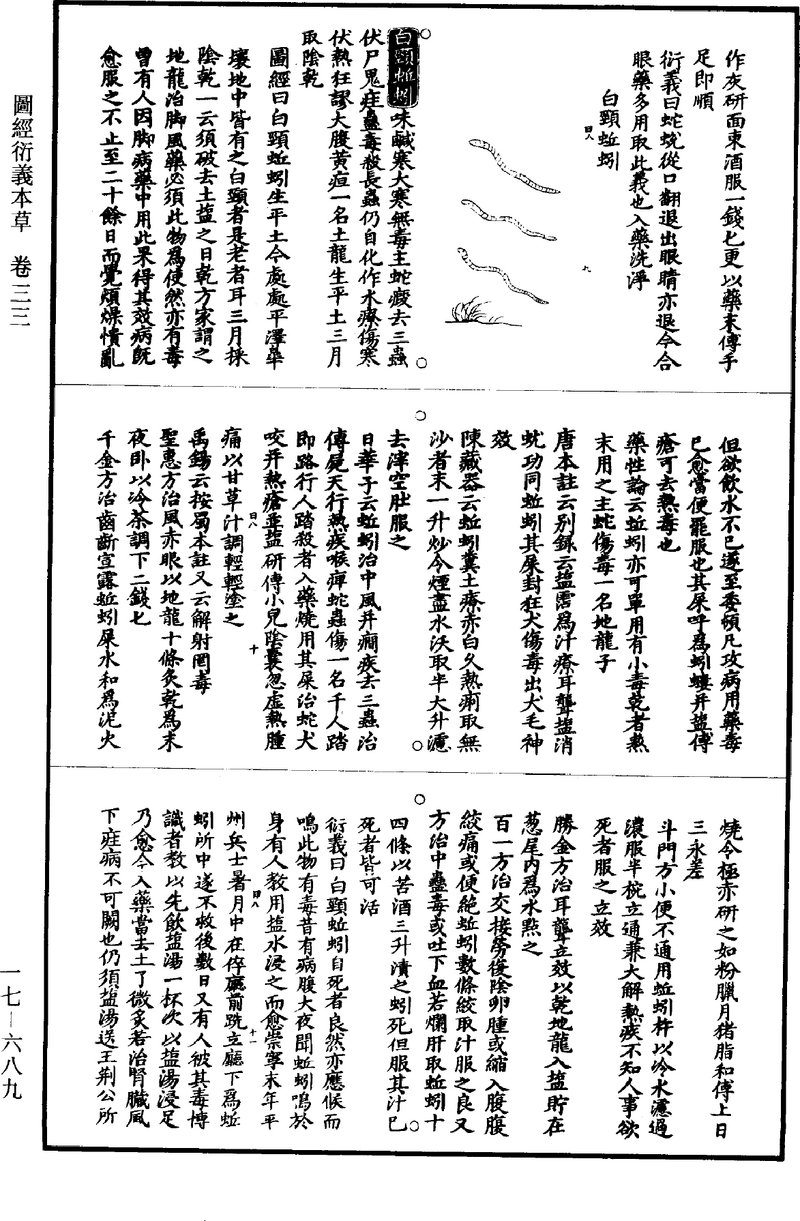 作灰研面東酒服一錢匕更以藥末傅手
足即順
衍義曰蛇蛻從口翻退出眼睛亦退今合
眼藥多用取此義也入藥洗淨
白頸蚯蚓
白頸蚯蚓味鹹寒大寒無毒主蛇瘕去三蟲
伏尸鬼疰蠱毒殺長蟲仍自化作水療傷寒
伏熱狂謬大腹黃疸一名土龍生平土三月
取陰乾
圖經曰白頸蚯蚓生平土今處處平澤皐
壤地中皆有之白頸者是老者耳三月採
陰乾一云須破去土鹽之日乾方家謂之
地龍治脚風藥必須此物爲使然亦有毒
曾有人因脚病藥中用此果得其效病既
愈服之不止至二十餘日而覺煩燥憒亂
但欲飲水不已遂至委頓凡攻病用藥毒
已愈當便罷服也其屎呼爲蚓螻并鹽傅
瘡可去熱毒也
藥性論云蚯蚓亦可單用有小毒乾者熱
末用之主蛇傷毒一名地龍子
唐本註云別錄云鹽霑爲汁療耳聾鹽消
蚘功同蚯蚓其屎封狂犬傷毒出犬毛神
效
陳藏器云蚯蚓糞土療赤白久熱痢取無
沙者末一升炒令煙盡水沃取半大升濾
去滓空肚服之
日華子云蚯蚓治中風并癇疾去三蟲治
傳屍天行熱疾喉痺蛇蟲傷一名千人踏
即路行人踏殺者入藥燒用其屎治蛇犬
咬并熱瘡並鹽研傅小兒陰囊忽虛熱腫
痛以甘草汁調輕輕塗之
禹錫云按蜀本註又云解射罔毒
聖惠方治風赤眼以地龍十條炙乾爲末
夜卧以冷茶調下二錢匕
千金方治齒齗宣露蚯蚓屎水和爲泥火
燒令極赤研之如粉臘月猪脂和傅上日
三永差
斗門方小便不通用蚯蚓杵以冷水濾過
濃服半椀立通兼大解熱疾不知人事欲
死者服之立效
勝金方治耳聾立效以乾地龍入鹽貯在
葱尾内爲水點之
百一方治交接勞復陰卵腫或縮入腹腹
絞痛或便絕蚯蚓數條絞取汁服之良又
方治中蠱毒或吐下血若爛肝取蚯蚓十
四條以苦酒三升漬之蚓死但服其汁已
死者皆可活
衍義曰白頸蚯蚓自死者良然亦應候而
鳴此物有毒昔有病腹大夜聞蚯蚓鳴於
身有人教用鹽水浸之而愈崇寧末年平
州兵士暑月中在倅廳前跣立廳下爲蚯
蚓所中遂不救後數日又有人被其毒博
識者教以先飲鹽湯一杯次以鹽湯浸足
乃愈今入藥當去土了微炙若治腎臟風
下疰病不可闕也仍須鹽湯送王荆公所
圖經衍義本草 卷三三
一七—六八九